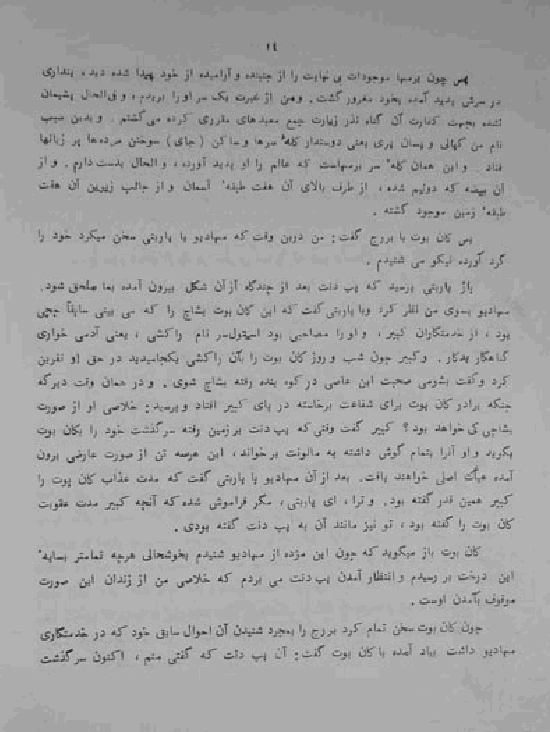 ١٤
پس چون برمها موجودات بی نهایت را از جنبنده و آرامیده از خود پیدا شده دید، پنداری
در سرش پدید آمده بخود مغرور گشت. ومن از غیرت یک سر او را بریدم، و فی‌الحال پشیمان
شده بجهت کفارت آن گناه نذر زیارت جمیع معبدهای مقرری کرده می‌گشتم. و بدین سبب
نام من کپالی و پسان پری یعنی دوستدار کلهٔ سرها و ساکن (جای) سوختن مرده‌ها بر زبانها
فتاد. و این همان کلهٔ سر برمهاست که عالم را او پدید آورده، و الحال بدست دارم. و از
آن بیضه که دونیم شده، از طرف بالای آن هفت طبقهٔ آسمان و از جانب زیرین آن هفت
طبقهٔ زمین موجود گشته.
پس کان بوت با برروچ گفت: من درین وقت که مهادیو با پاربتی سخن میکرد خود را
گرد آورده نیکو می شنیدم.
باز پاربتی پرسید که پپ دنت بعد از چندگاه از آن شکل بیرون آمده بما ملحق شود.
مهادیو بسوی من نظر کرد وبا پاربتی گفت که این کان بوت پشاچ را که می بینی سابقاً جچی
بود، از خدمتگاران کبیر، و او را مصاحبی بود استول‌سر نام راکشی، یعنی آدمی خواری
گناهگار بدکار. و کبیر چون شب و روز کان بوت را بآن راکشی یکجامیدید در حق او نفرین
کرد و گفت بشومی صحبت این عاصی در کوه بنده رفته پشاچ شوی. و در همان وقت دیرگه
جنکه برادر کان بوت برای شفاعت برخاسته در پای کبیر افتاد و پرسید: خلاصی او از صورت
پشاچی کی خواهد بود؟ کبیر گفت وقتی که پپ دنت بر زمین رفته سرگذشت خود را بکان بوت
بگوید و او آنرا بتمام گوش داشته به مالونت برخواند، این هرسه تن از صورت عارضی برون
آمده هیأت اصلی خواهند یافت. بعد از آن مهادیو با پاربتی گفت که مدت عذاب کان بوت را
کبیر همین قدر گفته بود. و ترا، ای پاربتی، مگر فراموش شده که آنچه کبیر مدت عقوبت
کان بوت را گفته بود، تو نیز مانند آن به پپ دنت گفته بودی.
کان بوت باز میگوید که چون این مژده از مهادیو شنیدم بخوشحالی هرچه تمامتر بسایهٔ
این درخت بر رسیدم و انتظار آمدن پپ دنت می بردم که خلاصی من از زندان این صورت
موقوف بآمدن اوست.
چون کان بوت سخن تمام کرد برروچ را بمجرد شنیدن آن احوال سابق خود که در خدمتگاری
مهادیو داشت بیاد آمده با کان بوت گفت: آن پپ دنت که گفتی منم، اکنون سرگذشت